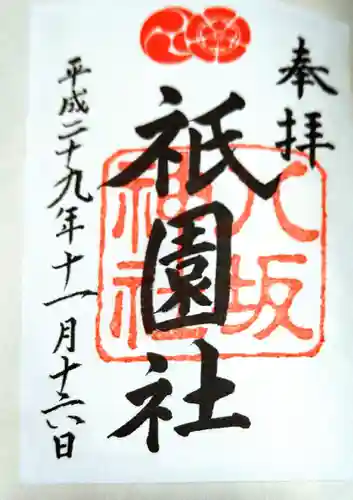 奉拝
八坂
神社
祇園社
平成二十九年十一月十六日